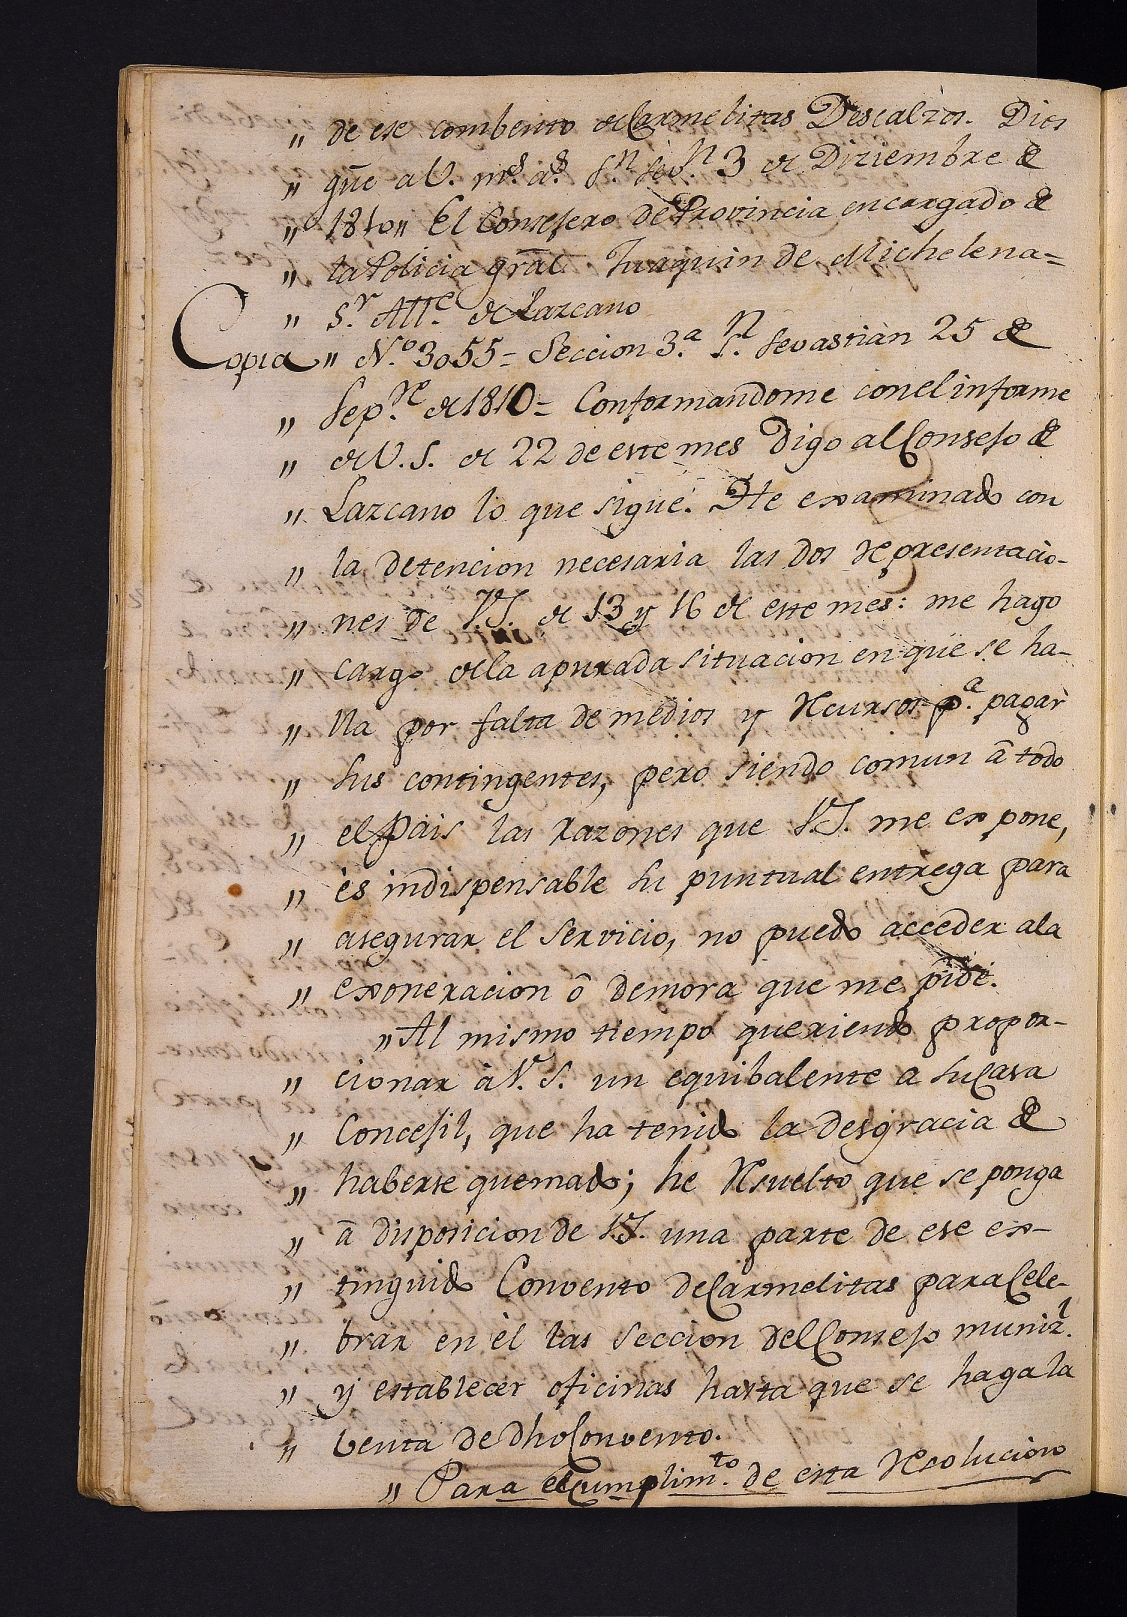 „ de ese combento de Carmelitas Descalzos. Dios
„ gue a V. ms. as. Sn. Sevn. 3 de Diziembre de
„ 1810„ El Consejero de Provincia encargado de
„ la Policia gral. Juaquin de Michelena=
„ Sr. Alle. de Lazcano
Copia „ N.o 3055= Seccion 3.a Sn. Sevastian 25 de
„ Sepre. de 1810= Conformandome con el informe
„ de V.S. de 22 de este mes Digo al Consejo de
„ Lazcano lo que sigue. He examinado con
„ la detencion necesaria las dos representacio-
„ nes de V.S. de 13 y 16 de este mes: me hago
„ cargo de la apurada situacion en que se ha-
„ lla por falta de medios y recursos p.a pagar
„ sus contingentes, pero siendo comun â todo
„ el Pais las razones que V.S. me expone,
„ ès indispensable su puntual entrega para
„ asegurar el Servicio, no puedo acceder ala
„ exoneracion ô demora que me pide.
„ Al mismo tiempo queriendo propor-
„ cionar à V.S. un equibalente a su Casa
„ Concejil, que ha tenido la desgracia de
„ haberse quemado; he resuelto que se ponga
„ â disposicion de V.S. una parte de ese ex-
„ tinguido Convento de Carmelitas para Cele-
„ brar en èl las Seccion del Consejo munizl.
„ y establecer oficinas hasta que se haga la
„ benta de dho Convento.
„ Para el Cumplimto. de esta resolucion